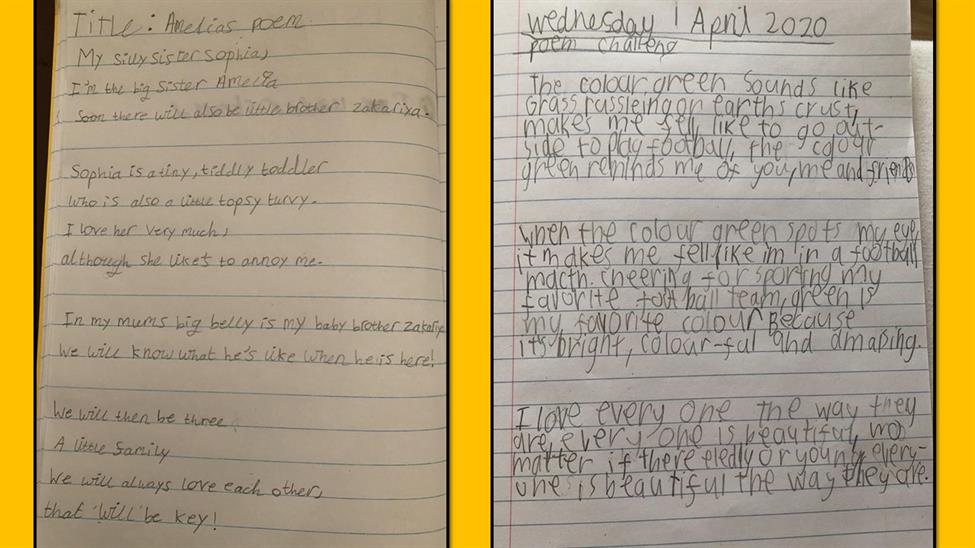 Title: Amelias poem
My silly sister Sophia,
I'm the big sister Amelia
Soon there will also be little brother zakariya.
Sophia is a tiny, tiddly toddler
who is also a little topsy turvy.
I love her very much,
although she likes to annoy me.
In my mums big belly is my baby brother zakariya
We will know what he's like when he is here!
We will then be three
A little family
We will always love each other,
that 'will' be key!
Wednesday 1 April 2020
poem challeng
The colour green sounds like
grass russleing on earths crust,
makes me fell like to go out-
side to play football, the colour
green reminds me of you, me and friends
When the colour green spots my eye,
it makes me fell like im in a football
macth. cheering for sporting my
favorite foot ball team, green is
my favorite colour Because
its bright, colour-ful and amazing.
I love every one the way they
are, every-one is beautiful, no
matter if there eledly or young, every-
one is beautiful the way they are.